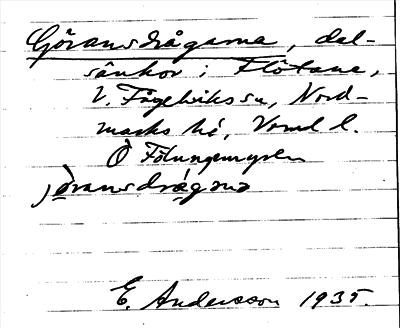 Göransdrågarna, dal-
sänkor i Flötane,
V. Fågelviks sn, Nord-
marks hd, Vrml l.
Ö Fölungemyren
jöransdrægnə
E. Andersson 1935.